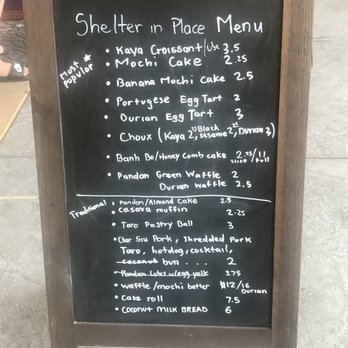 Shelter in Place Menu
Most popular
Kaya Croissant 3.5
Mochi Cake 2.25
Banana Mochi Cake 2.5
Portugese Egg Tart 2
Durian Egg Tart 3
Choux (Kaya 2, Black sesame 2, Durian 3)
Banh Bo/Honey comb cake 2.75 slice/11 full
Pandan Green Waffle 2
Durian Waffle 2.5
Traditional
Pandan/Almond Cake 2.5
Casava muffin 2.25
Taro Pastry Ball 3
Char Siu Pork, Shredded Pork
Taro, hotdog, cocktail,
coconut bun ... 2
Pandan Lotus w/egg yolk 3.75
Waffle/mochi batter $12/16 Durian
Cake roll 7.5
Coconut MILK BREAD 6